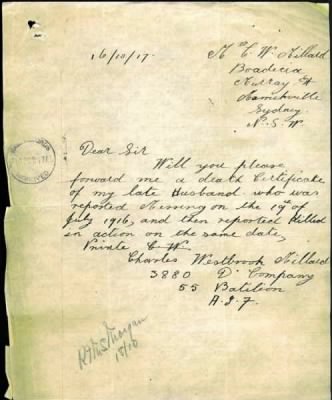 16/10/17.
Mrs C W Millard
Boadicia
Murray St
Marrickville
Sydney
N. S. W
Dear Sir
Will you please
forward me a death Certificate
of my late Husband who was
reported Missing on the 19th of
July 1916, and then reported Killed
in action on the same date,
Private C W
Charles Westbrook Millard
3880 D Company
55 Batilion
A. I. F.
18/10